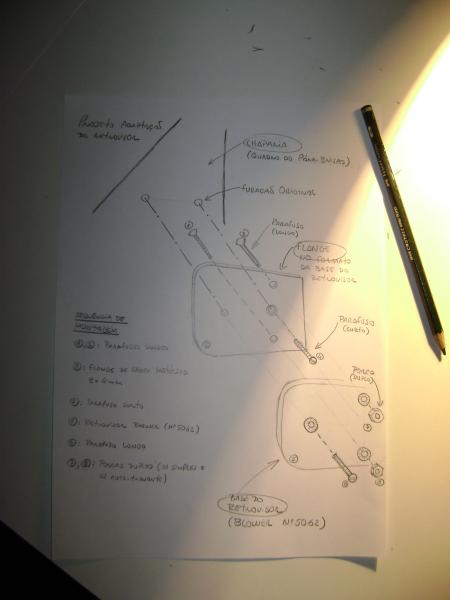 PROJETO ADAPTAÇÃO
DO RETROVISOR
CHAPARIA
(QUADRO DO PÁRA-BRISAS)
FURAÇÃO ORIGINAL
PARAFUSO
(LONGO)
FLANGE
NO FORMATO
DA BASE DO
RETROVISOR
PARAFUSO
(CURTO)
PORCA
(DUPLA)
SEQUÊNCIA DE
MONTAGEM
PARAFUSOS LONGOS
FLANGE DE
PARAFUSO CURTO
RETROVISOR BLOWER (Nº 5062)
PARAFUSO LONGO
PORCAS DUPLAS (01 SIMPLES E
01 AUTO-TRAVANTE)
BASE DO
RETROVISOR
(BLOWER Nº 5062)